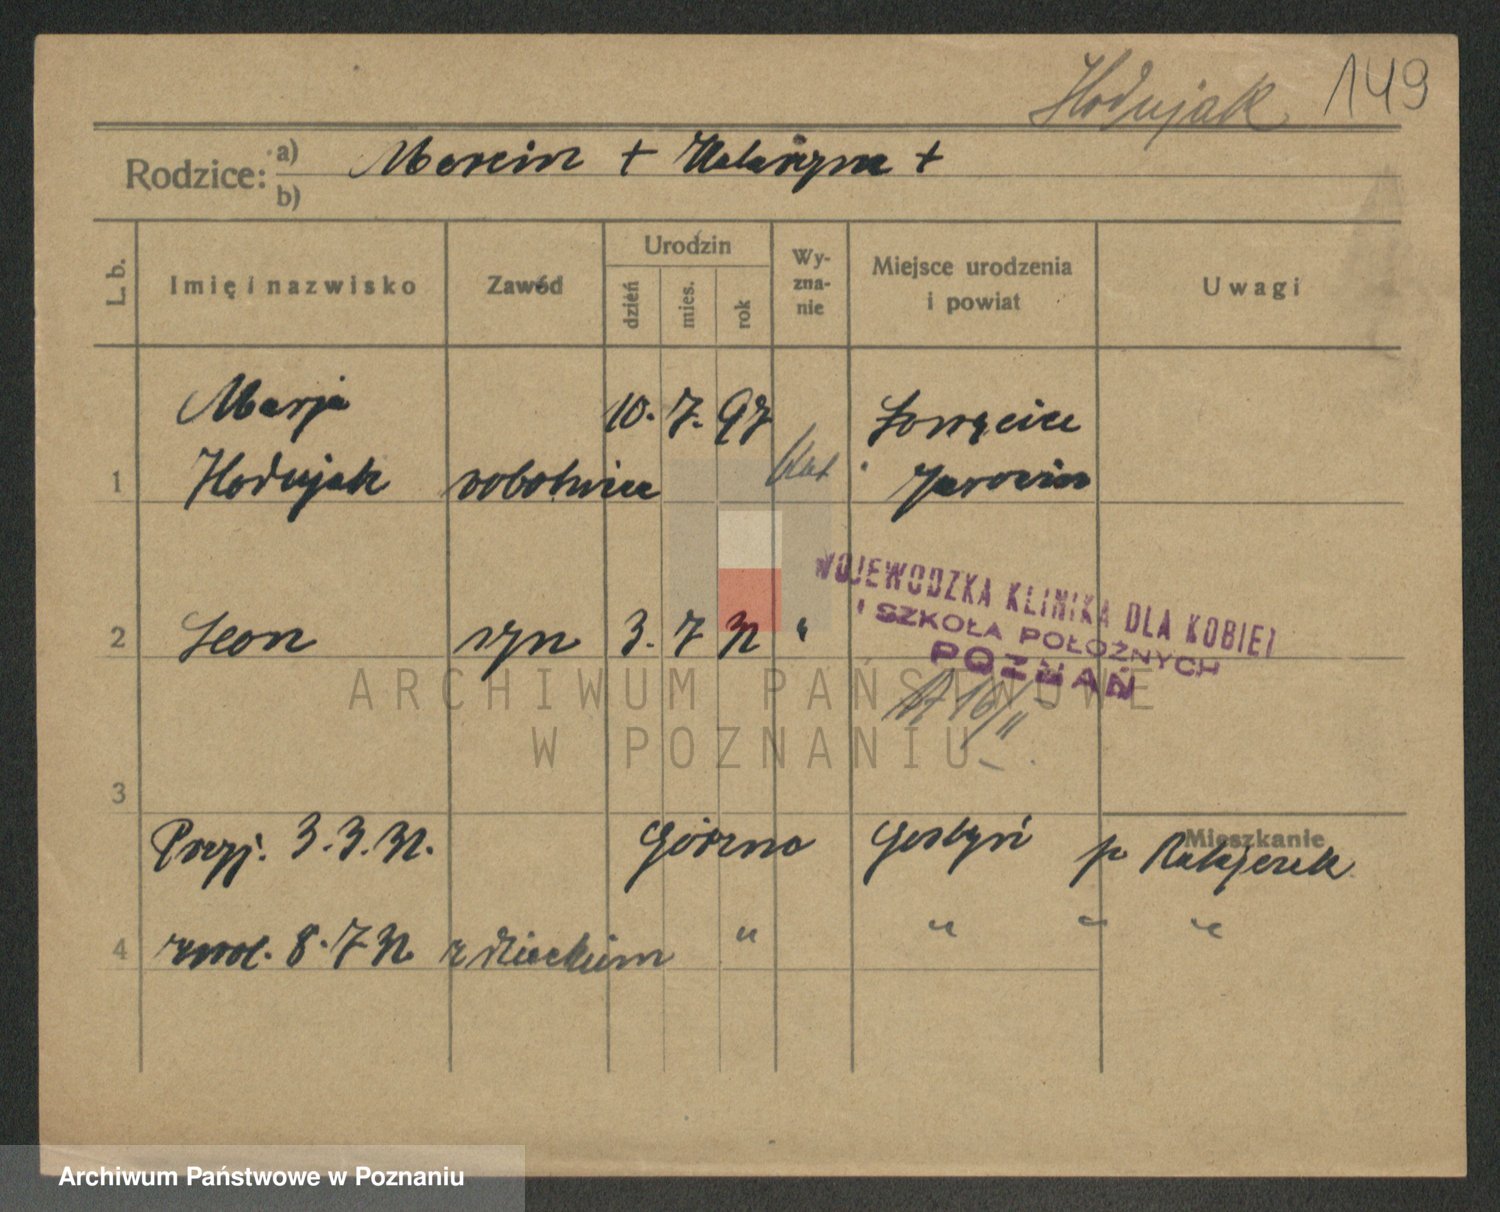 Hodujak 149
Rodzice: a) Marcin + Katarzyna +
b)
L. b. Imię i nazwisko Zawód Urodzin dzień mies. rok Wy-zna-nie Miejsce urodzenia i powiat Uwagi
Marja 10. 7. 97 Łowęcice
1 Hodujak robotnica kat Jarocin
WOJEWODZKA KLINIKA DLA KOBIET
I SZKOŁA POŁOŻNYCH
POZNAŃ
2 Leon syn 3. 7 32 "
16/II
3
Mieszkanie
Przyj. 3.3.32. Górzno Gostyń p Ratajczak
4 zwol. 8.7 32 z dzieckiem " " " "
ARCHIWUM PAŃSTWOWE
W POZNANIU
Archiwum Państwowe w Poznaniu